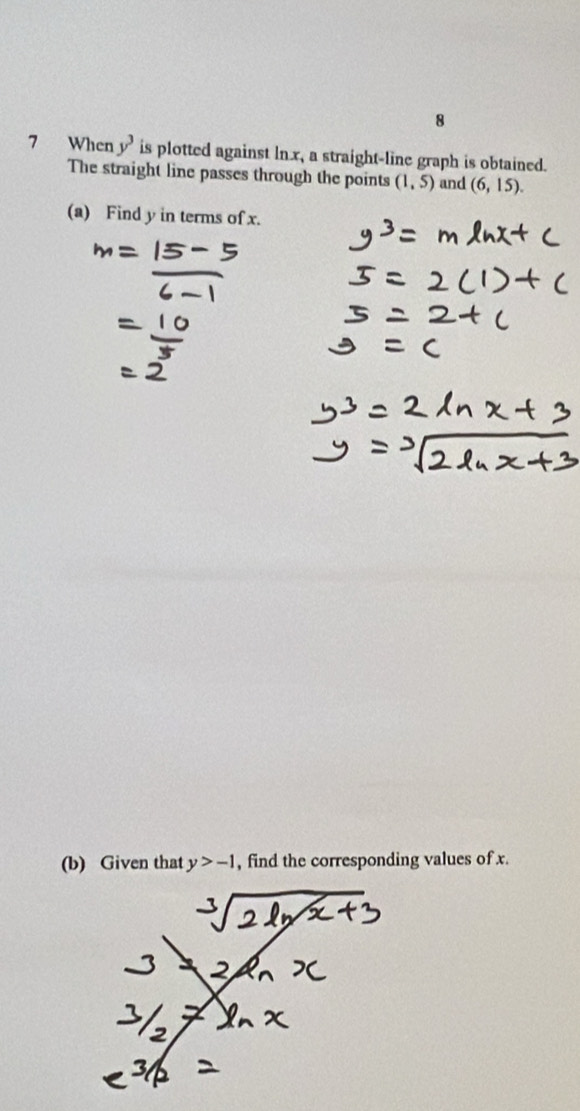 8
7 When y³ is plotted against ln x, a straight-line graph is obtained.
The straight line passes through the points (1, 5) and (6, 15).
(a) Find y in terms of x.
m = 15 - 5 / 6 - 1
= 10 / 5
= 2
y³ = m ln x + c
5 = 2(1) + c
5 = 2 + c
3 = c
y³ = 2 ln x + 3
y = ³√(2 ln x + 3)
(b) Given that y > −1, find the corresponding values of x.
³√(2 ln x + 3)
3 = 2 ln x
3/2 = ln x
e^3/2 =